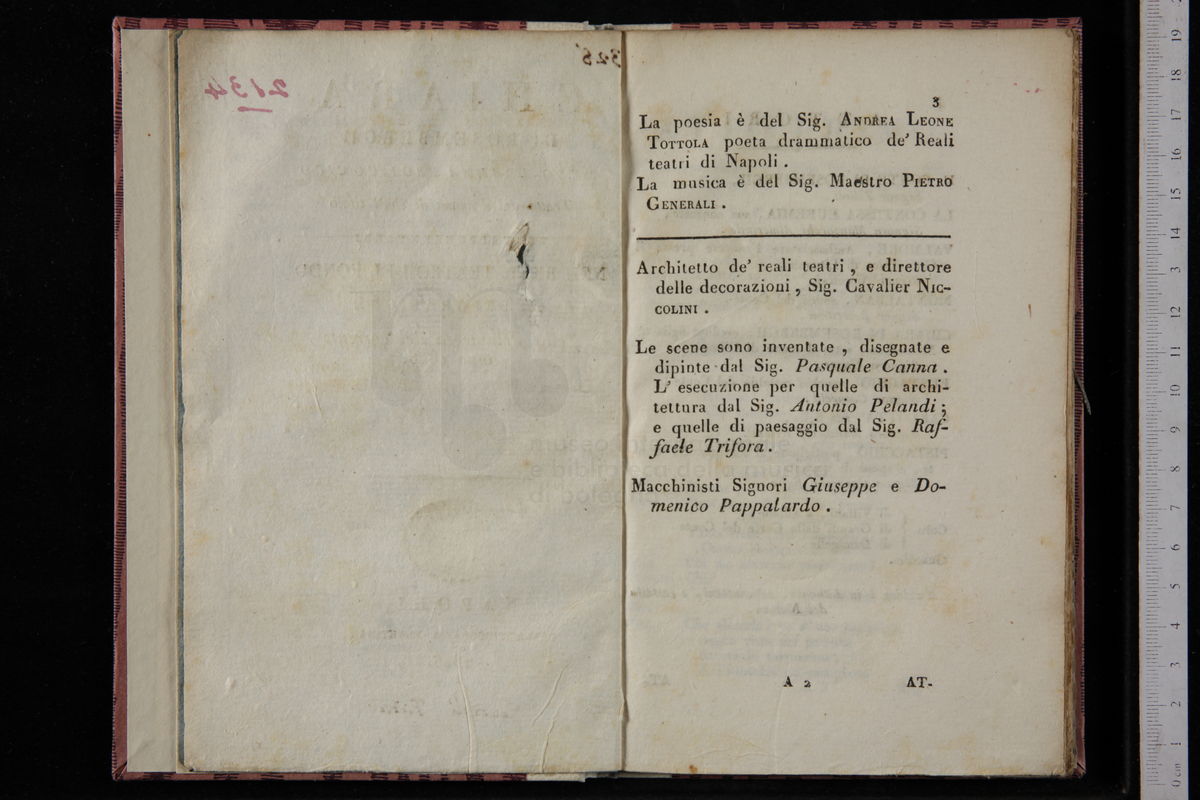 2134
325
3
La poesia è del Sig. ANDREA LEONE
TOTTOLA poeta drammatico de' Reali
teatri di Napoli .
La musica è del Sig. Maestro PIETRO
GENERALI .
Architetto de' reali teatri , e direttore
delle decorazioni , Sig. Cavalier NIC-
COLINI .
Le scene sono inventate , disegnate e
dipinte dal Sig. Pasquale Canna .
L' esecuzione per quelle di archi-
tettura dal Sig. Antonio Pelandi ;
e quelle di paesaggio dal Sig. Raf-
faele Trifora .
Macchinisti Signori Giuseppe e Do-
menico Pappalardo .
A 2 AT-
museo
e biblioteca della musica
di bologna
0 cm 1 2 3 4 5 6 7 8 9 10 11 12 13 14 15 16 17 18 19